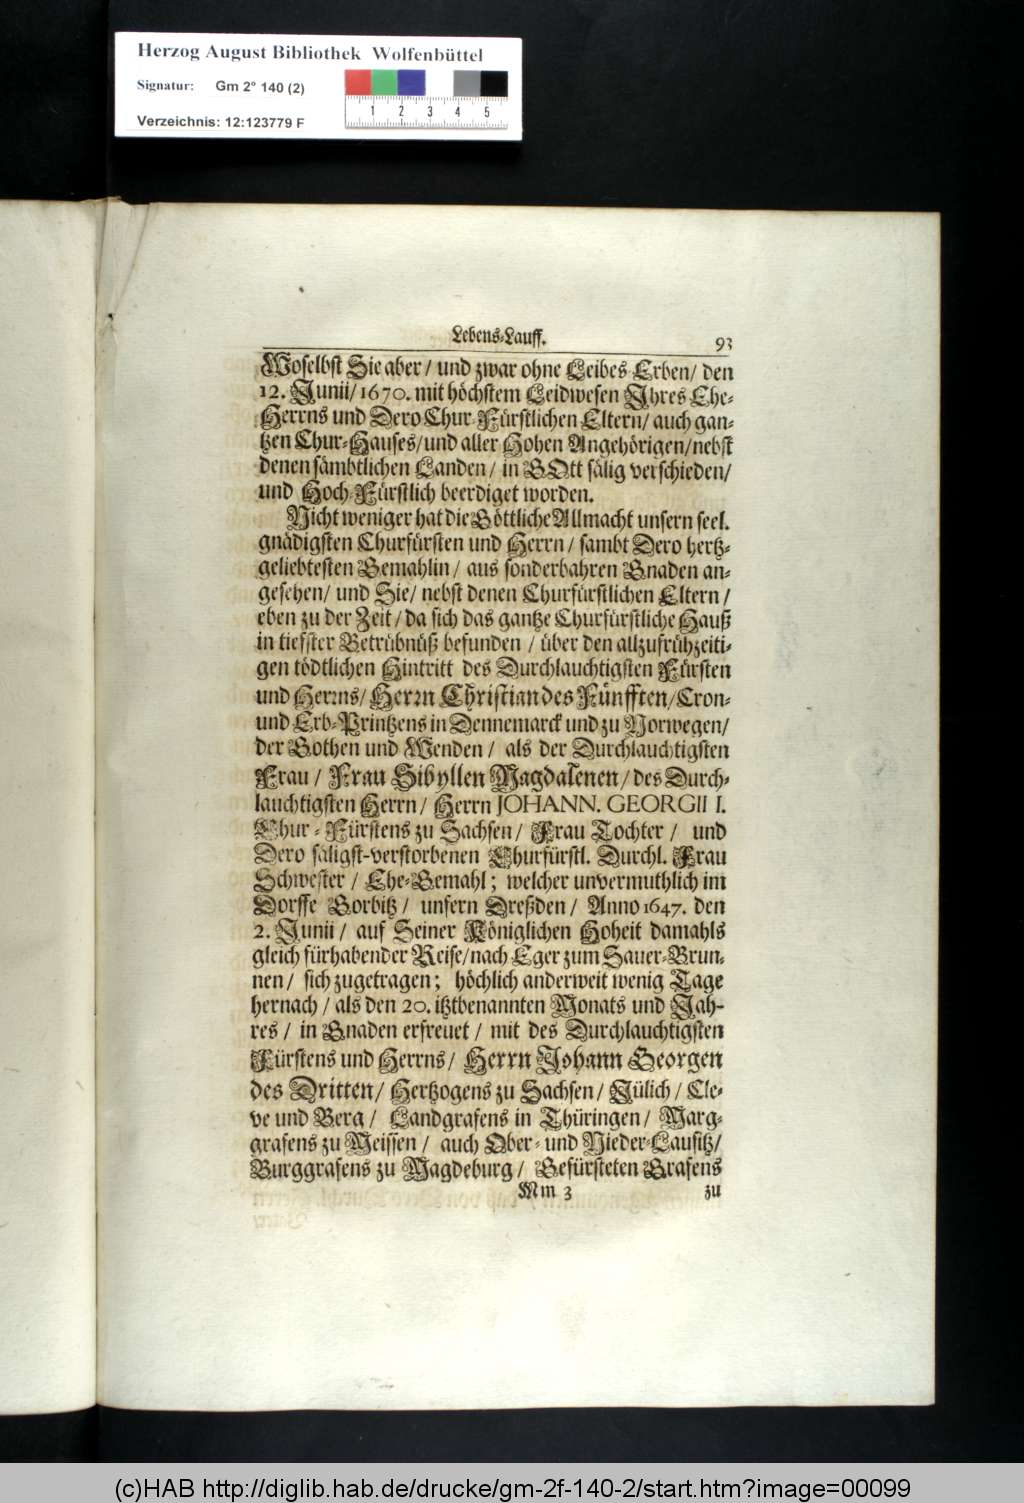 Herzog August Bibliothek Wolfenbüttel
Signatur: Gm 2° 140 (2)
Verzeichnis: 12:123779 F
1 2 3 4 5
Lebens-Lauff. 93
Woselbst Sie aber / und zwar ohne Leibes Erben / den
12. Junii / 1670. mit höchstem Leidwesen Ihres Ehe-
Herrns und Dero Chur-Fürstlichen Eltern / auch gan-
tzen Chur-Hauses / und aller Hohen Angehörigen / nebst
denen sämbtlichen Landen / in GOtt sälig verschieden /
und Hoch-Fürstlich beerdiget worden.
Nicht weniger hat die Göttliche Allmacht unsern seel.
gnädigsten Churfürsten und Herrn / sambt Dero hertz-
geliebtesten Gemahlin / aus sonderbahren Gnaden an-
gesehen / und Sie / nebst denen Churfürstlichen Eltern /
eben zu der Zeit / da sich das gantze Churfürstliche Hauß
in tieffster Betrübnüß befunden / über den allzufrühzeiti-
gen tödtlichen Hintritt des Durchlauchtigsten Fürsten
und Herrns / Herrn Christian des Fünfften / Cron-
und Erb-Printzens in Dennemarck und zu Norwegen /
der Gothen und Wenden / als der Durchlauchtigsten
Frau / Frau Sibyllen Magdalenen / des Durch-
lauchtigsten Herrn / Herrn JOHANN. GEORGII I.
Chur-Fürstens zu Sachsen / Frau Tochter / und
Dero säligst-verstorbenen Churfürstl. Durchl. Frau
Schwester / Ehe-Gemahl; welcher unvermuthlich im
Dorffe Gorbitz / unfern Dreßden / Anno 1647. den
2. Junii / auf Seiner Königlichen Hoheit damahls
gleich fürhabender Reise / nach Eger zum Sauer-Brun-
nen / sich zugetragen; höchlich anderweit wenig Tage
hernach / als den 20. itztbenannten Monats und Jah-
res / in Gnaden erfreuet / mit des Durchlauchtigsten
Fürstens und Herrns / Herrn Johann Georgen
des Dritten / Hertzogens zu Sachsen / Jülich / Cle-
ve und Berg / Landgrafens in Thüringen / Marg-
grafens zu Meissen / auch Ober- und Nieder-Lausitz /
Burggrafens zu Magdeburg / Gefürsteten Grafens
Mm 3 zu
(c)HAB http://diglib.hab.de/drucke/gm-2f-140-2/start.htm?image=00099